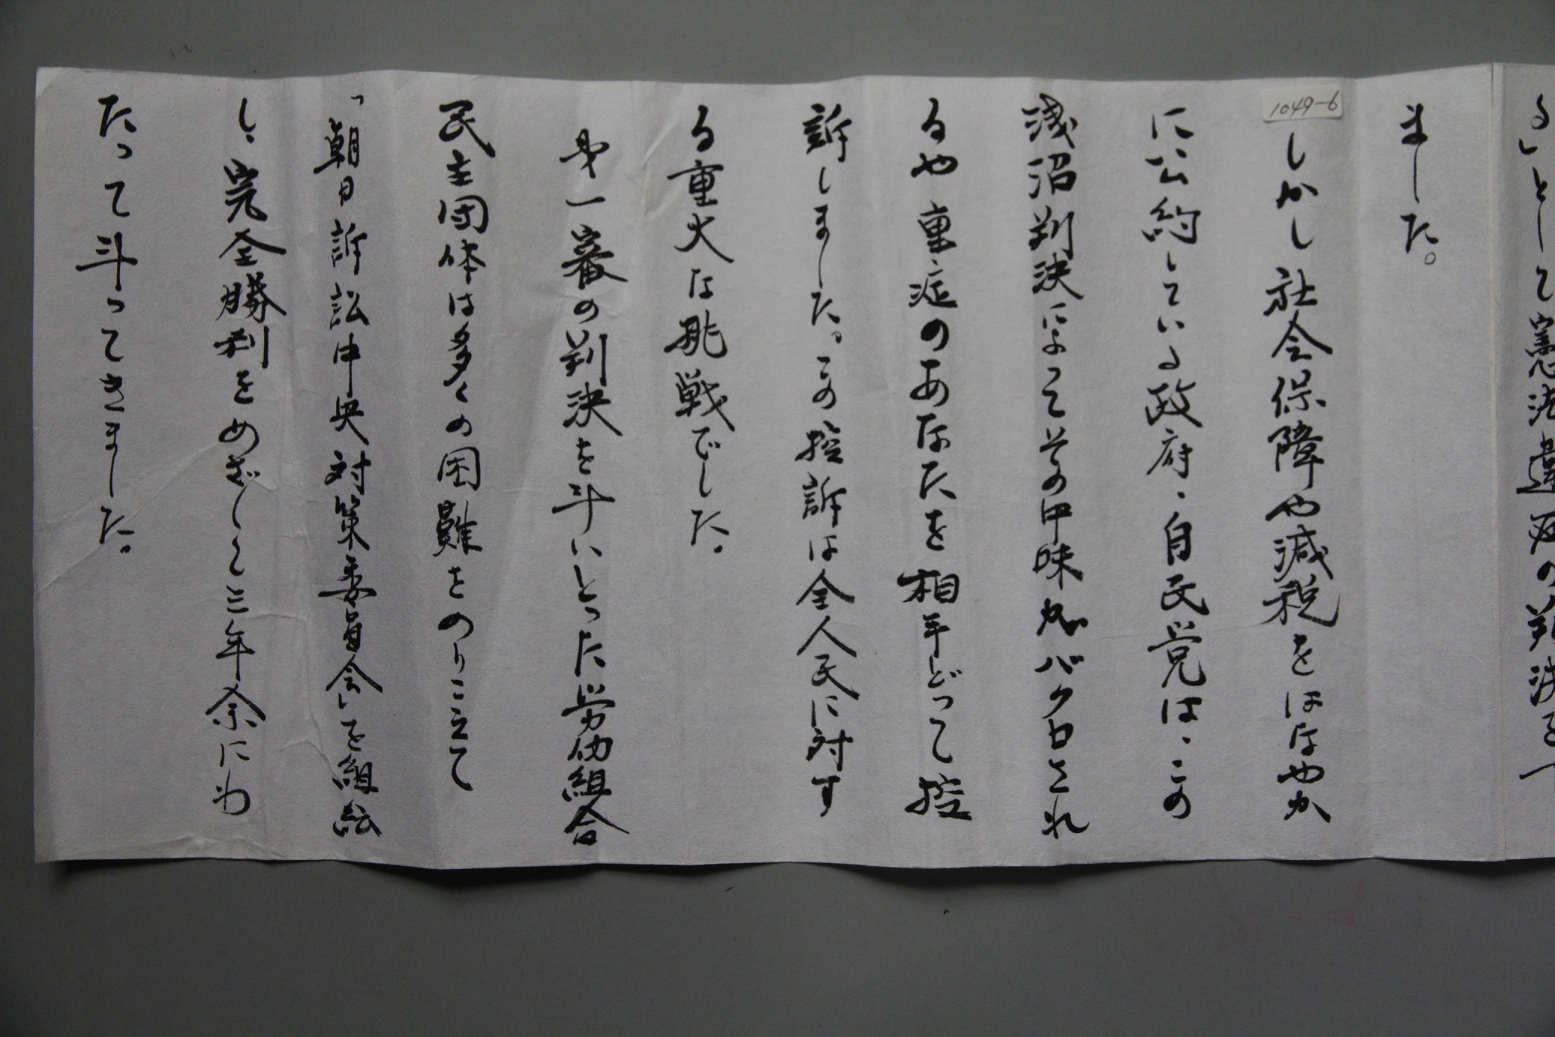 る」として憲法違反の判決を
ました。
1049-6
しかし社会保障や減税をはなやか
に公約している政府、自民党は、この
浅沼判決によってその中味がバクロされ
るや重症のあなたを相手どって控
訴しました。この控訴は全人民に対す
る重大な挑戦でした。
才一審の判決を斗いとった労仂組合
民主団体は多くの困難をのりこえて
「朝日訴訟中央対策委員会」を組織
し、完全勝利をめざして三年余にわ
たって斗ってきました。